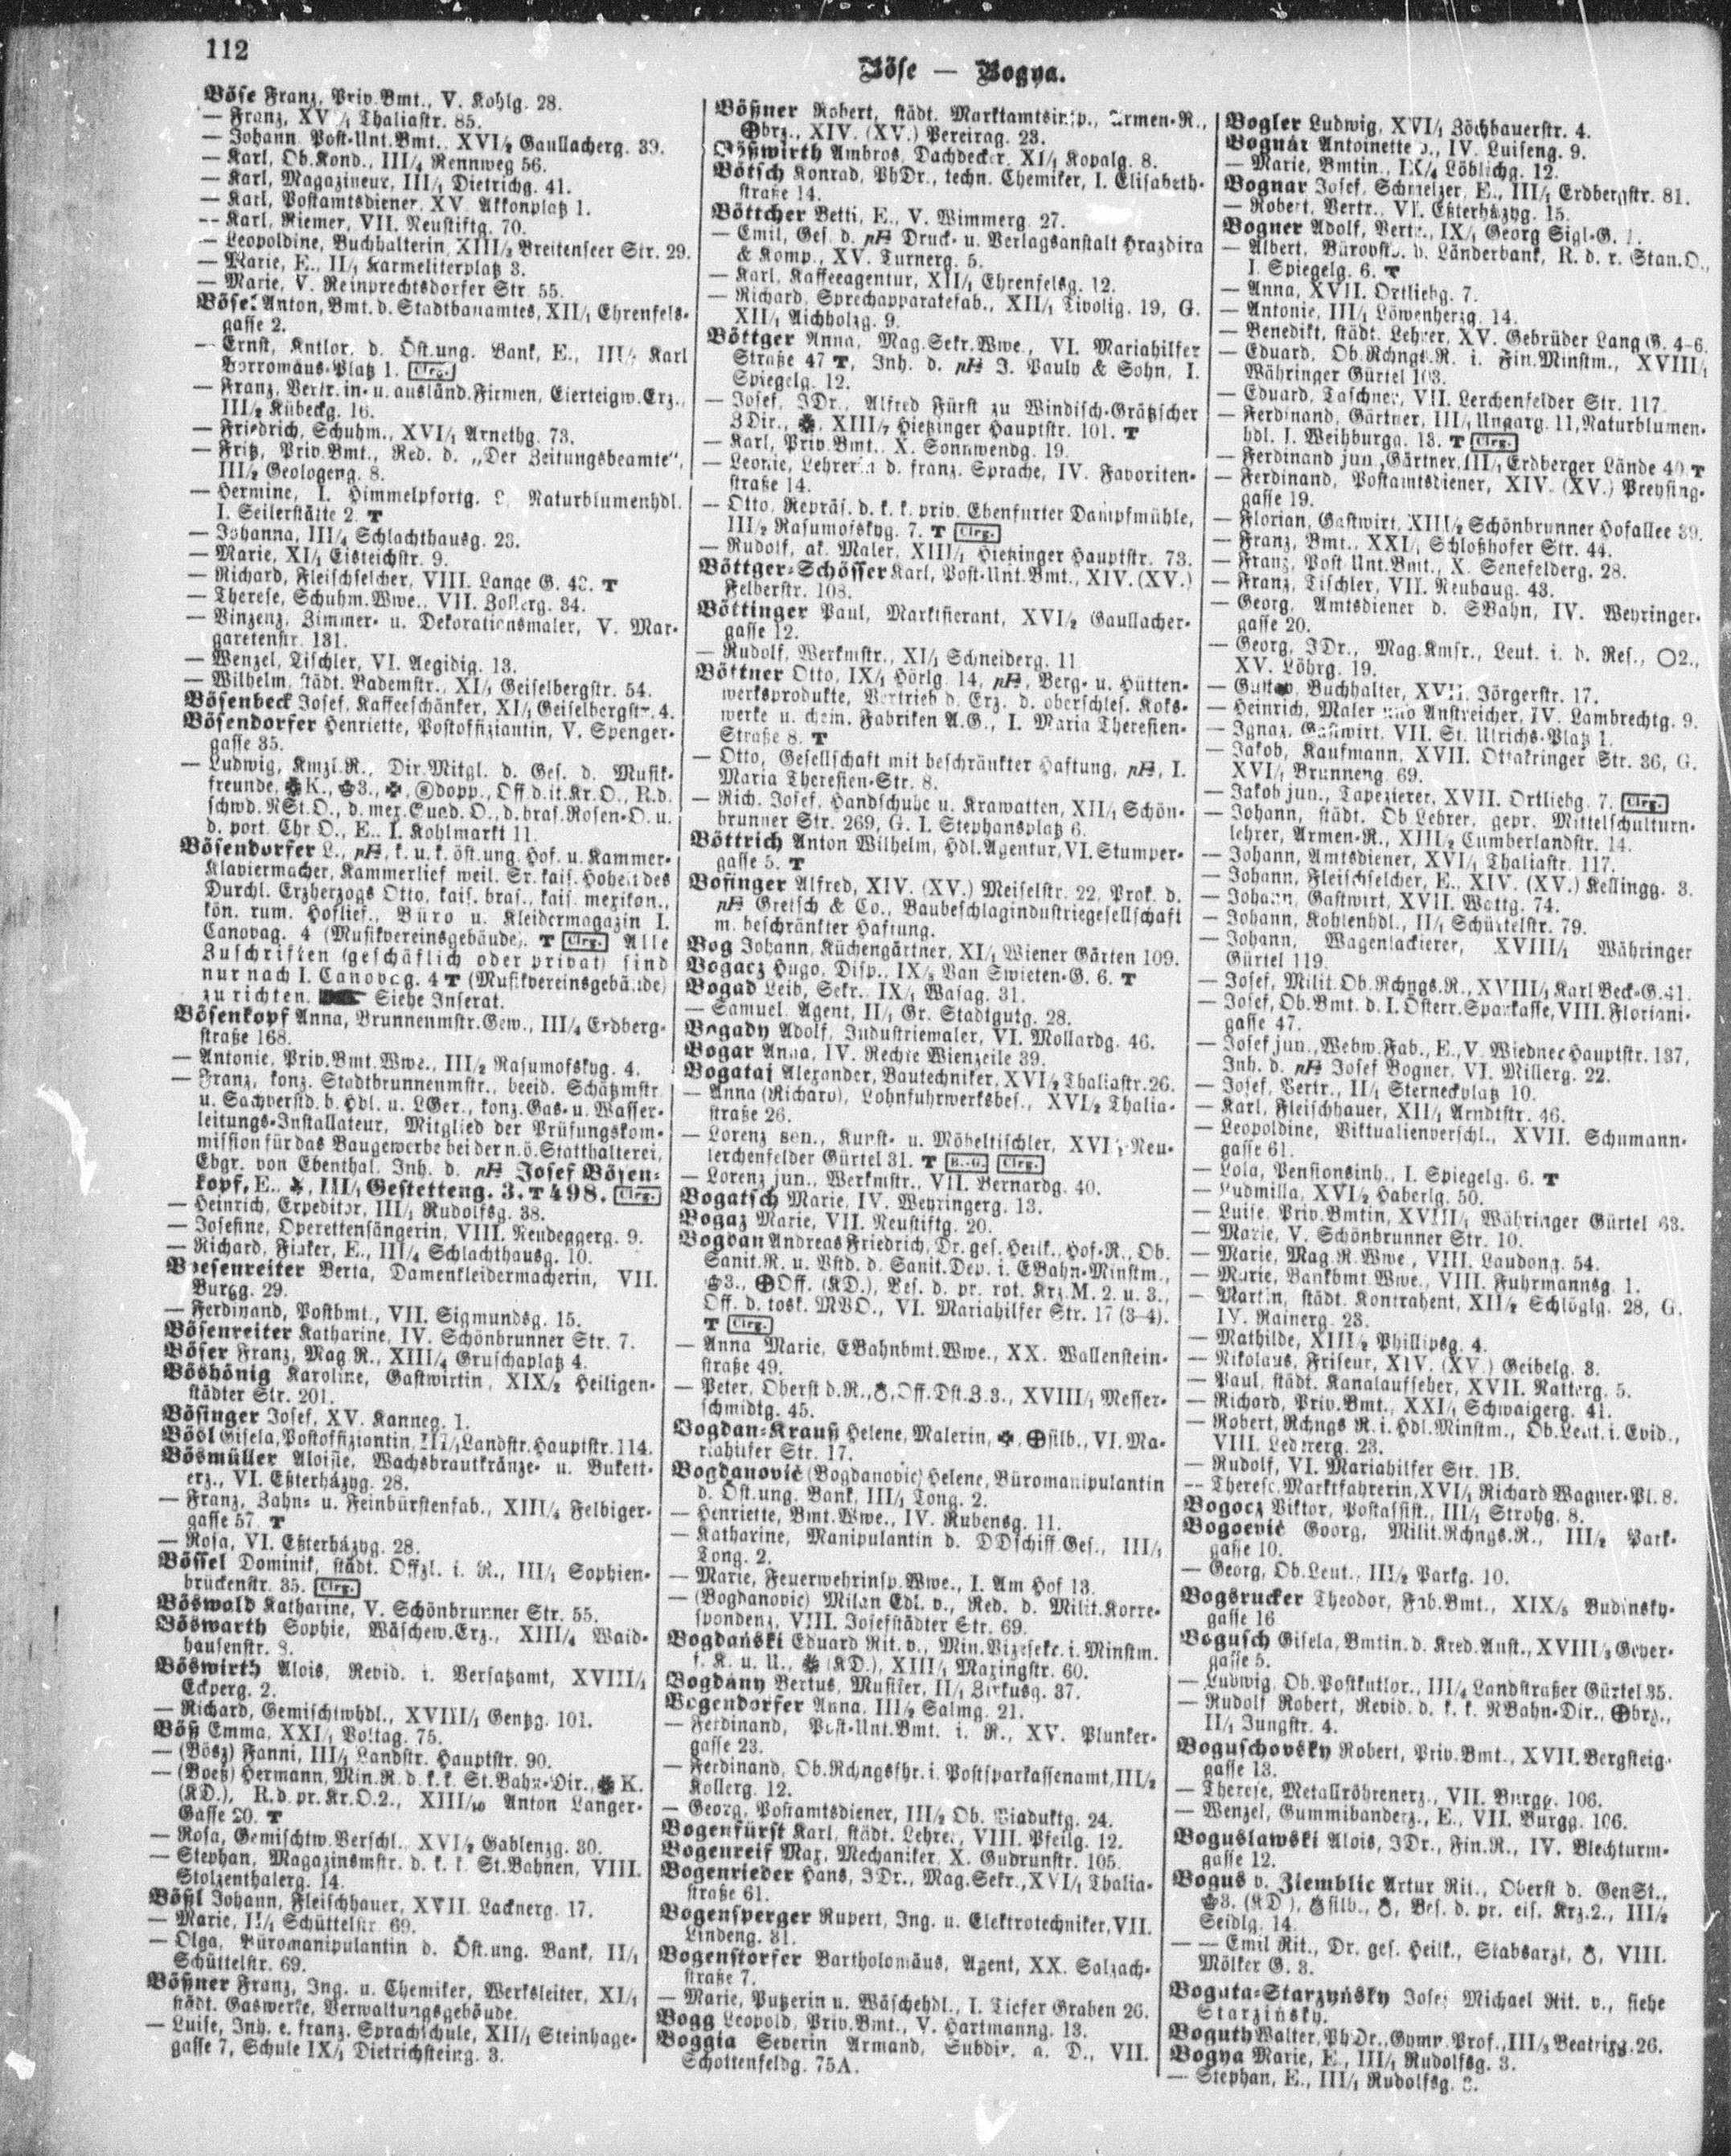 112
Böse — Bogya.
Böse Franz, Priv.Bmt., V. Kohlg. 28.
— Franz, XVI/1 Thaliastr. 85.
— Johann, Post-Unt.Bmt., XVI/2 Gaullacherg. 39.
— Karl, Ob.Kond., III/4 Rennweg 56.
— Karl, Magazineur, III/1 Dietrichg. 41.
— Karl, Postamtsdiener, XV. Akkonplatz 1.
— Karl, Riemer, VII. Neustiftg. 70.
— Leopoldine, Buchhalterin, XIII/2 Breitenseer Str. 29.
— Marie, E., II/1 Karmeliterplatz 3.
— Marie, V. Reinprechtsdorfer Str. 55.
Bösel Anton, Bmt. d. Stadtbauamtes, XII/1 Ehrenfels-
gasse 2.
— Ernst, Kntlor. d. Öst.ung. Bank, E., III/ Karl
Borromäus-Platz 1. Clrg.
— Franz, Vertr. in- u. ausländ. Firmen, Eierteigw.Erz.,
III/2 Kübeckg. 16.
— Friedrich, Schuhm., XVI/1 Arnethg. 73.
— Fritz, Priv.Bmt., Red. d. „Der Zeitungsbeamte",
III/2 Geologeng. 8.
— Hermine, I. Himmelpfortg. Naturblumenhdl.
I. Seilerstätte 2. T
— Johanna, III/4 Schlachthausg. 23.
— Marie, XI/1 Eisteichstr. 9.
— Richard, Fleischselcher, VIII. Lange G. T
— Therese, Schuhm.Wwe., VII. Zollerg. 34.
— Vinzenz, Zimmer- u. Dekorationsmaler, V. Mar-
garetenstr. 131.
— Wenzel, Tischler, VI. Aegidig. 13.
— Wilhelm, städt. Bademstr., XI/1 Geiselbergstr. 54.
Bösenbeck Josef, Kaffeeschänker, XI/1 Geiselbergstr. 4.
Bösendorfer Henriette, Postoffiziantin, V. Spenger-
gasse 35.
— Ludwig, Kmzl.R., Dir.Mitgl. d. Ges. d. Musik-
freunde, K., 3., dopp., Off.d.it.Kr.O., R.d.
schwd.NSt.O., d. mex.Guad.O., d. bras.Rosen-O. u.
d. port. Chr.O., E., I. Kohlmarkt 11.
Bösendorfer L., pF, k. u. k. öst.ung. Hof- u. Kammer-
Klaviermacher, Kammerlief. weil. Sr. kais. Hoheit des
Durchl. Erzherzogs Otto, kais. bras., kais. mexikon.,
kön. rum. Hoflief., Büro u. Kleidermagazin I.
Canovag. 4 (Musikvereinsgebäude). T Clrg. Alle
Zuschriften (geschäflich oder privat) sind
nur nach I. Canovag. 4 T (Musikvereinsgebäude)
zu richten. Siehe Inserat.
Bösenkopf Anna, Brunnenmstr.Gew., III/4 Erdberg-
straße 168.
— Antonie, Priv.Bmt.Wwe., III/2 Rasumofskyg. 4.
— Franz, konz. Stadtbrunnenmstr., beeid. Schätzmstr.
u. Sachverstd. b. Hdl. u. LGer., konz. Gas- u. Wasser-
leitungs-Installateur, Mitglied der Prüfungskom-
mission für das Baugewerbe bei der n. ö. Statthalterei,
Ebgr. von Ebenthal. Inh. d. pF Josef Bösen-
kopf, E., III/1 Gestetteng. 3. T 498. Clrg.
— Heinrich, Expeditor, III/1 Rudolfsg. 38.
— Josefine, Operettensängerin, VIII. Neudeggerg. 9.
— Richard, Fiaker, E., III/4 Schlachthausg. 10.
Boesenreiter Berta, Damenkleidermacherin, VII.
Burgg. 29.
— Ferdinand, Postbmt., VII. Sigmundsg. 15.
Bösenreiter Katharine, IV. Schönbrunner Str. 7.
Böser Franz, Mag.R., XIII/4 Gruschaplatz 4.
Böshönig Karoline, Gastwirtin, XIX/2 Heiligen-
städter Str. 201.
Bösinger Josef, XV. Kanneg. 1.
Bösl Gisela, Postoffiziantin, III/1 Landstr. Hauptstr. 114.
Bösmüller Aloisie, Wachsbrautkränze- u. Bukett-
erz., VI. Eßterházyg. 28.
— Franz, Zahn- u. Feinbürstenfab., XIII/5 Felbiger-
gasse 57. T
— Rosa, VI. Eßterházyg. 28.
Bössel Dominik, städt. Offzl. i. R., III/1 Sophien-
brückenstr. 35. Clrg.
Böswald Katharine, V. Schönbrunner Str. 55.
Böswarth Sophie, Wäschew.Erz., XIII/4 Waid-
hausenstr. 8.
Böswirth Alois, Revid. i. Versatzamt, XVIII/1
Eckperg. 2.
— Richard, Gemischtwhdl., XVIII/1 Gentzg. 101.
Böß Emma, XXI/1 Voltag. 75.
— (Bösz) Fanni, III/1 Landstr. Hauptstr. 90.
— (Boeß) Hermann, Min.R. d. k. k. St.Bahn-Dir., K.
(KD.), R.d.pr.Kr.O.2., XIII/10 Anton Langer-
Gasse 20. T
— Rosa, Gemischtw.Verschl., XVI/2 Gablenzg. 30.
— Stephan, Magazinsmstr. d. k. k. St.Bahnen, VIII.
Stolzenthalerg. 14.
Bößl Johann, Fleischhauer, XVII. Lacknerg. 17.
— Marie, II/1 Schüttelstr. 69.
— Olga, Büromanipulantin d. Öst.ung. Bank, II/1
Schüttelstr. 69.
Bößner Franz, Ing. u. Chemiker, Werksleiter, XI/1
städt. Gaswerke, Verwaltungsgebäude.
— Luise, Inh. e. franz. Sprachschule, XII/1 Steinhage-
gasse 7, Schule IX/1 Dietrichsteing. 3.
Bößner Robert, städt. Marktamtsinsp., Armen-R.,
brz., XIV. (XV.) Pereirag. 23.
Bößwirth Ambros, Dachdecker, XI/1 Kopalg. 8.
Bötsch Konrad, PhDr., techn. Chemiker, I. Elisabeth-
straße 14.
Böttcher Betti, E., V. Wimmerg. 27.
— Emil, Ges. d. pF Druck- u. Verlagsanstalt Hrazdira
& Komp., XV. Turnerg. 5.
— Karl, Kaffeeagentur, XII/1 Ehrenfelsg. 12.
— Richard, Sprechapparatefab., XII/1 Tivolig. 19, G.
XII/1 Aichholzg. 9.
Böttger Anna, Mag.Sekr.Wwe., VI. Mariahilfer
Straße 47 T, Inh. d. pF J. Pauly & Sohn, I.
Spiegelg. 12.
— Josef, JDr., Alfred Fürst zu Windisch-Grätzscher
ZDir., XIII/7 Hietzinger Hauptstr. 101. T
— Karl, Priv.Bmt., X. Sonnwendg. 19.
— Leonie, Lehrerin d. franz. Sprache, IV. Favoriten-
straße 14.
— Otto, Repräs. d. k. k. priv. Ebenfurter Dampfmühle,
III/2 Rasumofskyg. 7. T Clrg.
— Rudolf, ak. Maler, XIII/1 Hietzinger Hauptstr. 73.
Böttger-Schösser Karl, Post-Unt.Bmt., XIV. (XV.)
Felberstr. 108.
Böttinger Paul, Marktfierant, XVI/2 Gaullacher-
gasse 12.
— Rudolf, Werkmstr., XI/1 Schneiderg. 11.
Böttner Otto, IX/1 Hörlg. 14, pF, Berg- u. Hütten-
werksprodukte, Vertrieb d. Erz. d. oberschles. Koks-
werke u. chem. Fabriken A.G., I. Maria Theresien-
Straße 8. T
— Otto, Gesellschaft mit beschränkter Haftung, pF, I.
Maria Theresien-Str. 8.
— Rich. Josef, Handschuhe u. Krawatten, XII/1 Schön-
brunner Str. 269, G. I. Stephansplatz 6.
Böttrich Anton Wilhelm, Hdl.Agentur, VI. Stumper-
gasse 5. T
Bofinger Alfred, XIV. (XV.) Meiselstr. 22, Prok. d.
pF Gretsch & Co., Baubeschlagindustriegesellschaft
m. beschränkter Haftung.
Bog Johann, Küchengärtner, XI/1 Wiener Gärten 109.
Bogacz Hugo, Disp., IX/3 Van Swieten-G. 6. T
Bogad Leib, Sekr., IX/1 Wasag. 31.
— Samuel, Agent, II/1 Gr. Stadtgutg. 28.
Bogady Adolf, Industriemaler, VI. Mollardg. 46.
Bogar Anna, IV. Rechte Wienzeile 39.
Bogataj Alexander, Bautechniker, XVI/2 Thaliastr. 26.
— Anna (Richard), Lohnfuhrwerksbes., XVI/2 Thalia-
straße 26.
— Lorenz sen., Kunst- u. Möbeltischler, XVI/1 Neu-
lerchenfelder Gürtel 31. T B.-G. Clrg.
— Lorenz jun., Werkmstr., VII. Bernardg. 40.
Bogatsch Marie, IV. Weyringerg. 13.
Bogaz Marie, VII. Neustiftg. 20.
Bogdan Andreas Friedrich, Dr. ges. Heilk., Hof-R., Ob.
Sanit.R. u. Vstd. d. Sanit.Dep. i. EBahn-Minstm.,
3., Off. (KD.), Bes. d. pr. rot. Krz.M. 2. u. 3.,
Off. d. tosk. MVO., VI. Mariahilfer Str. 17 (3–4).
T Clrg.
— Anna Marie, EBahnbmt.Wwe., XX. Wallenstein-
straße 49.
— Peter, Oberst d.R., Off.Dst.Z.3., XVIII/1 Messer-
schmidtg. 45.
Bogdan-Krauß Helene, Malerin, silb., VI. Ma-
riahilfer Str. 17.
Bogdanović (Bogdanovic) Helene, Büromanipulantin
d. Öst.ung. Bank, III/1 Tong. 2.
— Henriette, Bmt.Wwe., IV. Rubensg. 11.
— Katharine, Manipulantin d. DDschiff.Ges., III/1
Tong. 2.
— Marie, Feuerwehrinsp.Wwe., I. Am Hof 13.
— (Bogdanovic) Milan Edl. v., Red. d. Milit.Korre-
spondenz, VIII. Josefstädter Str. 69.
Bogdański Eduard Rit. v., Min.Vizesekr. i. Minstm.
f. K. u. U., (KD.), XIII/1 Maxingstr. 60.
Bogdány Bertus, Musiker, II/1 Zirkusg. 37.
Bogendorfer Anna, III/2 Salmg. 21.
— Ferdinand, Post-Unt.Bmt. i. R., XV. Plunker-
gasse 23.
— Ferdinand, Ob.Rchngsfhr. i. Postsparkassenamt, III/2
Kollerg. 12.
— Georg, Postamtsdiener, III/2 Ob. Viaduktg. 24.
Bogenfürst Karl, städt. Lehrer, VIII. Pfeilg. 12.
Bogenreif Max, Mechaniker, X. Gudrunstr. 105.
Bogenrieder Hans, JDr., Mag.Sekr., XVI/1 Thalia-
straße 61.
Bogensperger Rupert, Ing. u. Elektrotechniker, VII.
Lindeng. 31.
Bogenstorfer Bartholomäus, Agent, XX. Salzach-
straße 7.
— Marie, Putzerin u. Wäschehdl., I. Tiefer Graben 26.
Bogg Leopold, Priv.Bmt., V. Hartmanng. 13.
Boggia Severin Armand, Subdir. a. D., VII.
Schottenfeldg. 75A.
Bogler Ludwig, XVI/1 Zöchbauerstr. 4.
Bognár Antoinette v., IV. Luiseng. 9.
— Marie, Bmtin., IX/4 Löblichg. 12.
Bognar Josef, Schmelzer, E., III/1 Erdbergstr. 81.
— Robert, Vertr., VI. Eßterházyg. 15.
Bogner Adolf, Vertr., IX/1 Georg Sigl-G.
— Albert, Bürovstd. d. Länderbank, R. d. r. Stan.O.,
I. Spiegelg. 6. T
— Anna, XVII. Ortliebg. 7.
— Antonie, III/1 Löwenherzg. 14.
— Benedikt, städt. Lehrer, XV. Gebrüder Lang G. 4–6.
— Eduard, Ob.Rchngs.R. i. Fin.Minstm., XVIII/1
Währinger Gürtel 103.
— Eduard, Taschner, VII. Lerchenfelder Str. 117.
— Ferdinand, Gärtner, III/1 Ungarg. 11, Naturblumen-
hdl. I. Weihburgg. 13. T Clrg.
— Ferdinand jun., Gärtner, III/1 Erdberger Lände 40. T
— Ferdinand, Postamtsdiener, XIV. (XV.) Preysing-
gasse 19.
— Florian, Gastwirt, XIII/2 Schönbrunner Hofallee 39.
— Franz, Bmt., XXI/1 Schloßhofer Str. 44.
— Franz, Post.Unt.Bmt., X. Senefelderg. 28.
— Franz, Tischler, VII. Neubaug. 43.
— Georg, Amtsdiener d. SBahn, IV. Weyringer-
gasse 20.
— Georg, JDr., Mag.Kmsr., Leut. i. d. Res., 2.,
XV. Löhrg. 19.
— Gustav, Buchhalter, XVII. Jörgerstr. 17.
— Heinrich, Maler und Anstreicher, IV. Lambrechtg. 9.
— Ignaz, Gastwirt, VII. St. Ulrichs-Platz 1.
— Jakob, Kaufmann, XVII. Ottakringer Str. 36, G.
XVI/1 Brunneng. 69.
— Jakob jun., Tapezierer, XVII. Ortliebg. 7. Clrg.
— Johann, städt. Ob.Lehrer, gepr. Mittelschulturn-
lehrer, Armen-R., XIII/2 Cumberlandstr. 14.
— Johann, Amtsdiener, XVI/1 Thaliastr. 117.
— Johann, Fleischselcher, E., XIV. (XV.) Kellingg. 3.
— Johann, Gastwirt, XVII. Wattg. 74.
— Johann, Kohlenhdl., II/1 Schüttelstr. 79.
— Johann, Wagenlackierer, XVIII/1 Währinger
Gürtel 119.
— Josef, Milit.Ob.Rchngs.R., XVIII/1 Karl Beck-G. 41.
— Josef, Ob.Bmt. d. I. Österr. Sparkasse, VIII. Floriani-
gasse 47.
— Josef jun., Webw.Fab., E., V. Wiedner Hauptstr. 137,
Inh. d. pF Josef Bogner, VI. Millerg. 22.
— Josef, Vertr., II/1 Sterneckplatz 10.
— Karl, Fleischhauer, XII/1 Arndtstr. 46.
— Leopoldine, Viktualienverschl., XVII. Schumann-
gasse 61.
— Lola, Pensionsinh., I. Spiegelg. 6. T
— Ludmilla, XVI/2 Haberlg. 50.
— Luise, Priv.Bmtin, XVIII/1 Währinger Gürtel 63.
— Marie, V. Schönbrunner Str. 10.
— Marie, Mag.R.Wwe., VIII. Laudong. 54.
— Marie, Bankbmt.Wwe., VIII. Fuhrmannsg. 1.
— Martin, städt. Kontrahent, XII/2 Schlöglg. 28, G.
IV. Rainerg. 23.
— Mathilde, XIII/2 Phillipsg. 4.
— Nikolaus, Friseur, XIV. (XV.) Geibelg. 3.
— Paul, städt. Kanalaufseher, XVII. Natterg. 5.
— Richard, Priv.Bmt., XXI/1 Schwaigerg. 41.
— Robert, Rchngs R. i. Hdl.Minstm., Ob.Leut. i. Evid.,
VIII. Ledererg. 23.
— Rudolf, VI. Mariahilfer Str. 1B.
— Therese, Marktfahrerin, XVI/1 Richard Wagner-Pl. 8.
Bogocz Viktor, Postassist., III/1 Strohg. 8.
Bogoević Georg, Milit.Rchngs.R., III/2 Park-
gasse 10.
— Georg, Ob.Leut., III/2 Parkg. 10.
Bogsrucker Theodor, Fab.Bmt., XIX/5 Budinsky-
gasse 16.
Bogusch Gisela, Bmtin. d. Kred.Anst., XVIII/3 Geyer-
gasse 5.
— Ludwig, Ob.Postkntlor., III/4 Landstraßer Gürtel 35.
— Rudolf Robert, Revid. d. k. k. NBahn-Dir., brz.,
II/1 Jungstr. 4.
Boguschovsky Robert, Priv.Bmt., XVII. Bergsteig-
gasse 13.
— Therese, Metallröhrenerz., VII. Burgg. 106.
— Wenzel, Gummibanderz., E., VII. Burgg. 106.
Boguslawski Alois, JDr., Fin.R., IV. Blechturm-
gasse 12.
Bogus v. Ziemblic Artur Rit., Oberst d. GenSt.,
3. (KD.), silb., Bes. d. pr. eis. Krz.2., III/2
Seidlg. 14.
— — Emil Rit., Dr. ges. Heilk., Stabsarzt, VIII.
Mölker G. 3.
Boguta-Starzyński Josef Michael Rit. v., siehe
Starzińsky.
Boguth Walter, PhDr., Gymn.Prof., III/3 Beatrixg. 26.
Bogya Marie, E., III/1 Rudolfsg. 3.
— Stephan, E., III/1 Rudolfsg. 3.